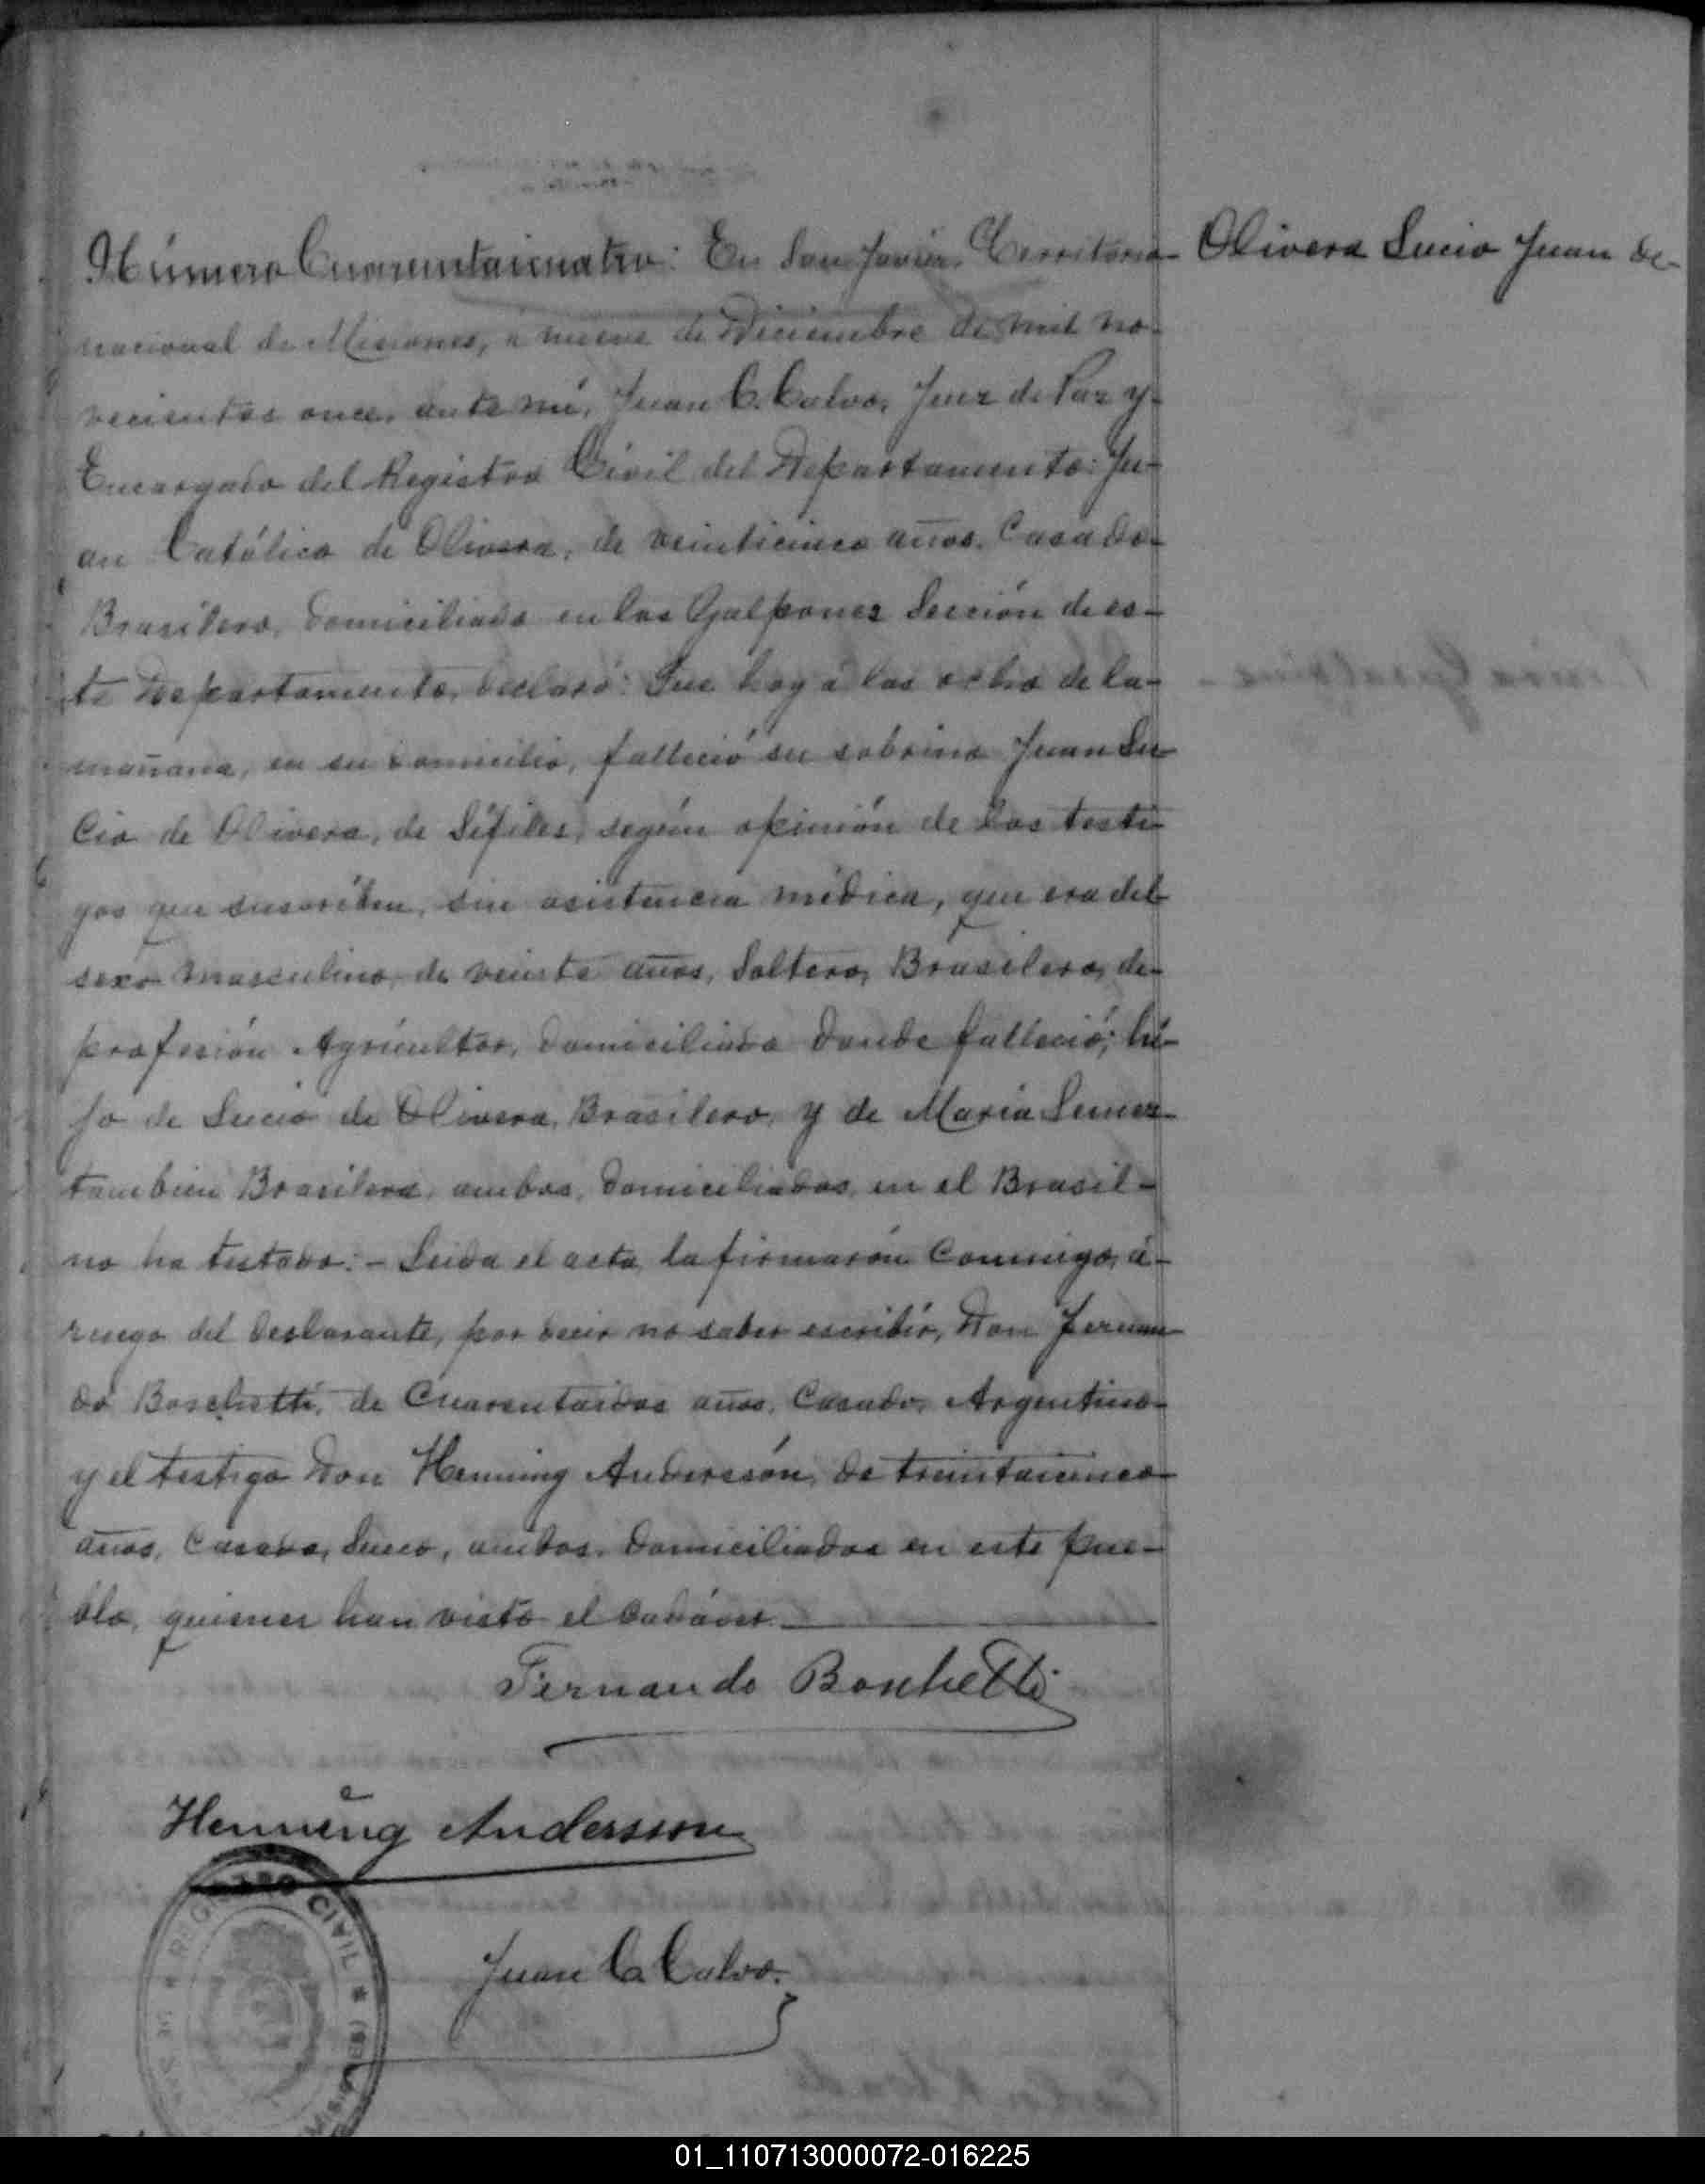 Número Cuarentaicuatro: En San Javier, Territorio
Olivera Lucio Juan de
nacional de Misiones, á nueve de Diciembre de mil no-
vecientos once, ante mí, Juan C. Calvo, Juez de Paz y
Encargado del Registro Civil del Departamento: Ju-
an Católico de Olivera, de veinticinco años, Casado
Brasilero, domiciliado en los Galpones Sección de es-
te Departamento, declaró: Que hoy á las ocho de la
mañana, en su domicilio, falleció su sobrino Juan Lu-
cio de Olivera, de Sífiles, según opinión de los testi-
gos que suscriben, sin asistencia médica, que era del
sexo masculino, de veinte años, Soltero, Brasilero, de
profesión Agricultor, domiciliado donde falleció; hi-
jo de Lucio de Olivera, Brasilero, y de María
tambien Brasilera, ambos, domiciliados, en el Brasil-
no ha testado:- Leida el acta, la firmarón Conmigo, á-
ruego del declarante, por decir no saber escribir, Don Fernan-
do Boschetti, de Cuarentaidos años, Casado, Argentino
y el testigo Don Henning Anderssón, de treintaicinco
años, Casado, Sueco, ambos, domiciliados en este pue-
blo, quienes han visto el Cadáver.
Fernando Boschetti
Henning Andersson
REGISTRO CIVIL
Juan C. Calvo.
01_110713000072-016225